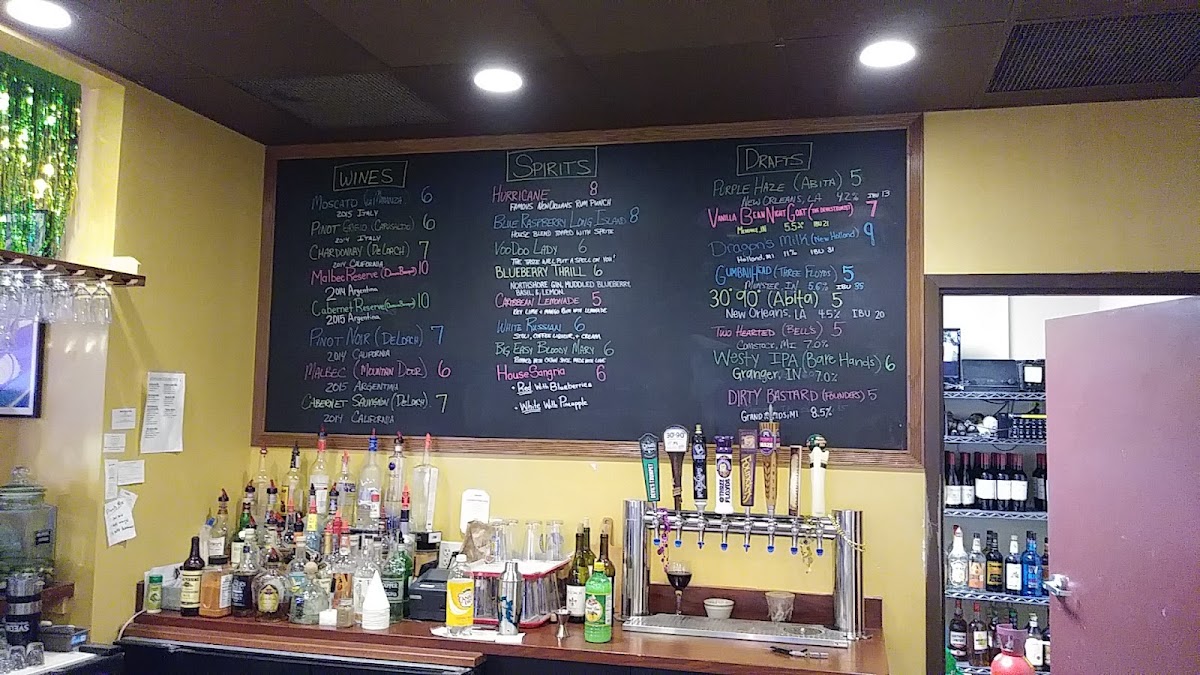 WINES
MOSCATO 6
2015 ITALY
PINOT GRIGIO 6
2014 ITALY
CHARDONNAY (DELOACH) 7
2014 CALIFORNIA
Malbec Reserve 10
2014 Argentina
Cabernet Reserve 10
2015 Argentina
PINOT NOIR (DELOACH) 7
2014 CALIFORNIA
MALBEC (MOUNTAIN DOOR) 6
2015 ARGENTINA
CABERNET SAUVIGNON (DELOACH) 7
2014 CALIFORNIA
SPIRITS
HURRICANE 8
FAMOUS NEW ORLEANS RUM PUNCH
BLUE RASPBERRY LONG ISLAND 8
HOUSE BLEND TOPPED WITH SPRITE
VOODOO LADY 6
THE TASTE WILL PUT A SPELL ON YOU!
BLUEBERRY THRILL 6
NORTHSHORE GIN, MUDDLED BLUEBERRY,
BASIL, & LEMON
CARIBBEAN LEMONADE 5
KEY LIME & MANGO RUM WITH LEMONADE
WHITE RUSSIAN 6
STOLI, COFFEE LIQUEUR, & CREAM
BIG EASY BLOODY MARY 6
House Sangria 6
• Red With Blueberries
• White With Pineapple
DRAFTS
PURPLE HAZE (ABITA) 5
NEW ORLEANS, LA 4.2% IBU 13
VANILLA BEAN NIGHT GOAT 7
MEMPHIS, IN 5.5% IBU 21
Dragon's Milk (New Holland) 9
Holland, MI 11% IBU 31
GUMBALLHEAD (THREE FLOYDS) 5
MUNSTER, IN 5.6% IBU 35
30°90° (Abita) 5
New Orleans, LA 4.5% IBU 20
TWO HEARTED (BELL'S) 5
COMSTOCK, MI 7.0%
WESTY IPA (Bare Hands) 6
Granger, IN 7.0%
DIRTY BASTARD (FOUNDERS) 5
GRAND RAPIDS, MI 8.5%
30°90°
THREE
FLOYDS
FOUNDERS
SVEDKA